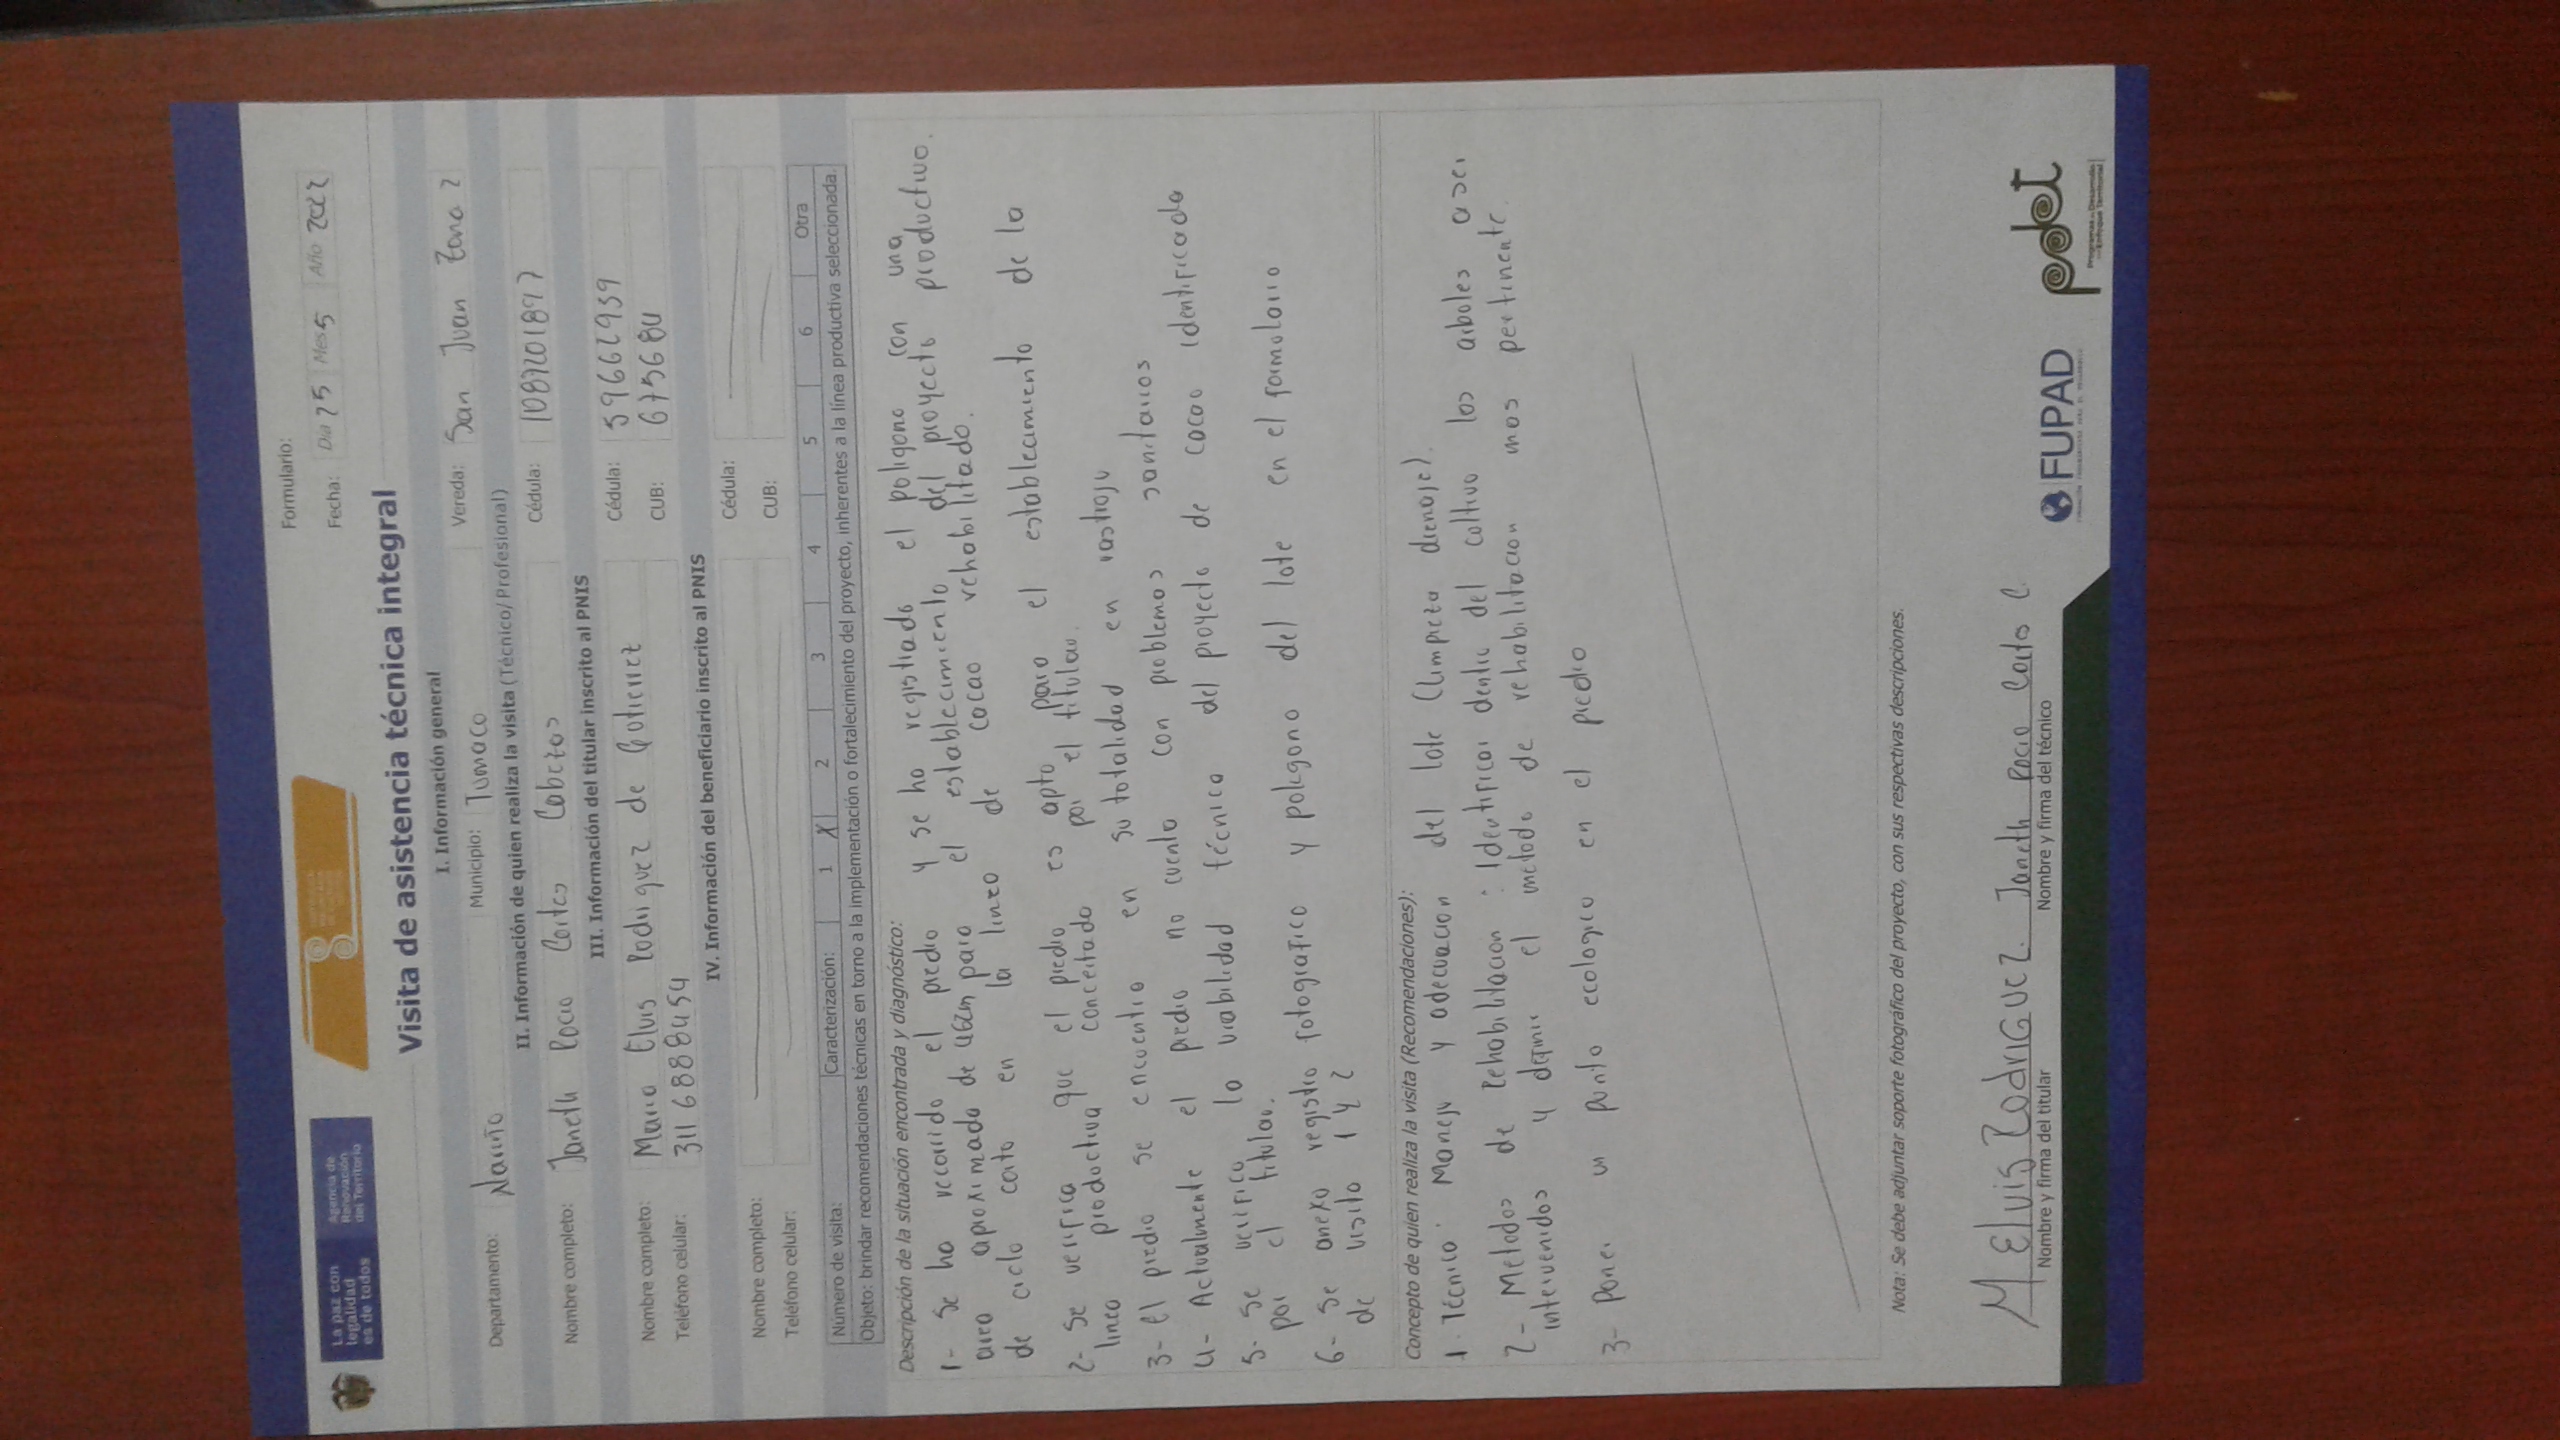 La paz con
legalidad
es de todos
Agencia de
Renovación
del Territorio
Formulario:
Fecha: Día 25 Mes 5 Año 2022
Visita de asistencia técnica integral
I. Información general
Departamento: Nariño Municipio: Tumaco Vereda: San Juan Zona 2
II. Información de quien realiza la visita (Técnico/Profesional)
Nombre completo: Janeth Rocio Cortes Cabezas Cédula: 1087201897
III. Información del titular inscrito al PNIS
Nombre completo: Maria Elvis Rodriguez de Gutierrez Cédula: 59662939
Teléfono celular: 3116888454 CUB: 675684
IV. Información del beneficiario inscrito al PNIS
Nombre completo: Cédula:
Teléfono celular: CUB:
Número de visita: Caracterización: 1 X 2 3 4 5 6 Otra
Objeto: brindar recomendaciones técnicas en torno a la implementación o fortalecimiento del proyecto, inherentes a la línea productiva seleccionada.
Descripción de la situación encontrada y diagnóstico:
1- se ha recorrido el predio y se ha registrado el poligono con una
area aproximada de para el establecimiento del proyecto productivo.
de ciclo corto en la linea de cacao rehabilitado.
2- se verifica que el predio es apto para el establecimiento de la
linea productiva concertado por el titular.
3- el predio se encuentra en su totalidad en rastrojo
4- Actualmente el predio no cuenta con problemas sanitarios
5- se verifico la viabilidad técnica del proyecto de cacao identificado
por el titular.
6- se anexa registro fotografico y poligono del lote en el formolario
de visita 1 y 2
Concepto de quien realiza la visita (Recomendaciones):
1. Técnico. Manejo y adecuacion del lote (limpieza drenaje).
2- Metodos de Rehabilitacion : Identificar dentro del coltivo los arboles a ser
intervenidos y definir el metodo de rehabilitacion mas pertinente.
3- Poner un punto ecologico en el predio
Nota: Se debe adjuntar soporte fotográfico del proyecto, con sus respectivas descripciones.
M Elvis RodriGuez. Janeth Rocio Cortes C.
Nombre y firma del titular Nombre y firma del técnico
FUPAD
pdet
Programas de Desarrollo
con Enfoque Territorial